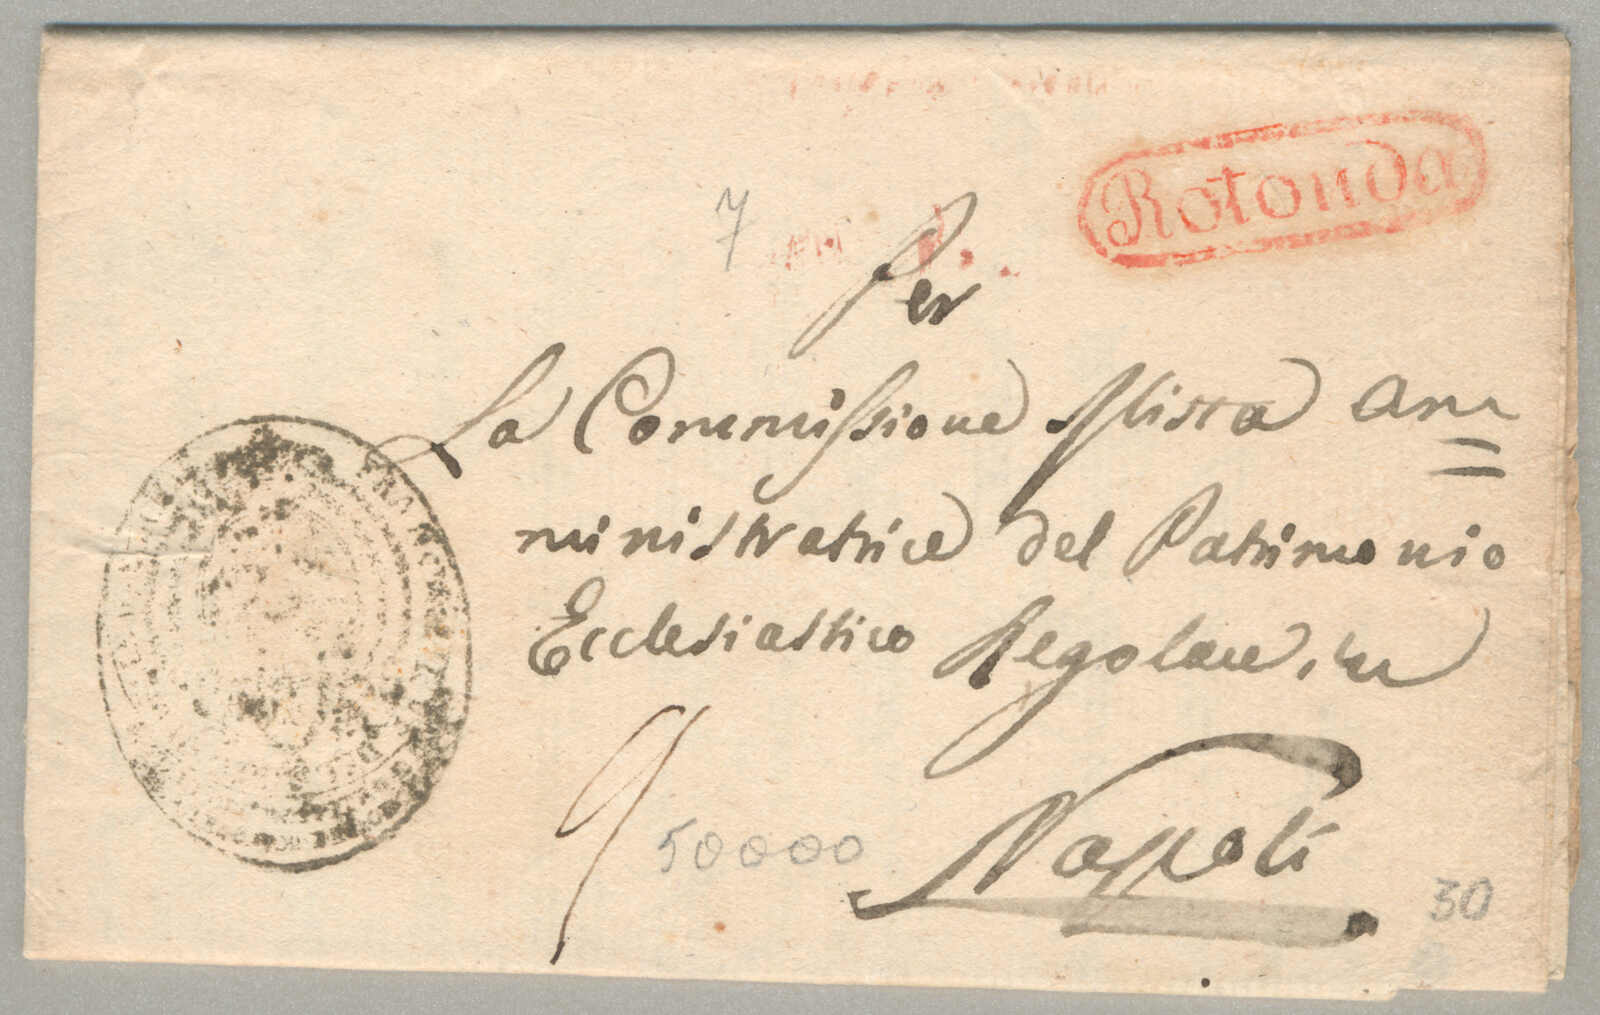 Rotonda
7
Per
La Commissione Mista am=
ministratrice del Patrimonio
Ecclesiastico Regolare, in
Napoli
9
50000
30